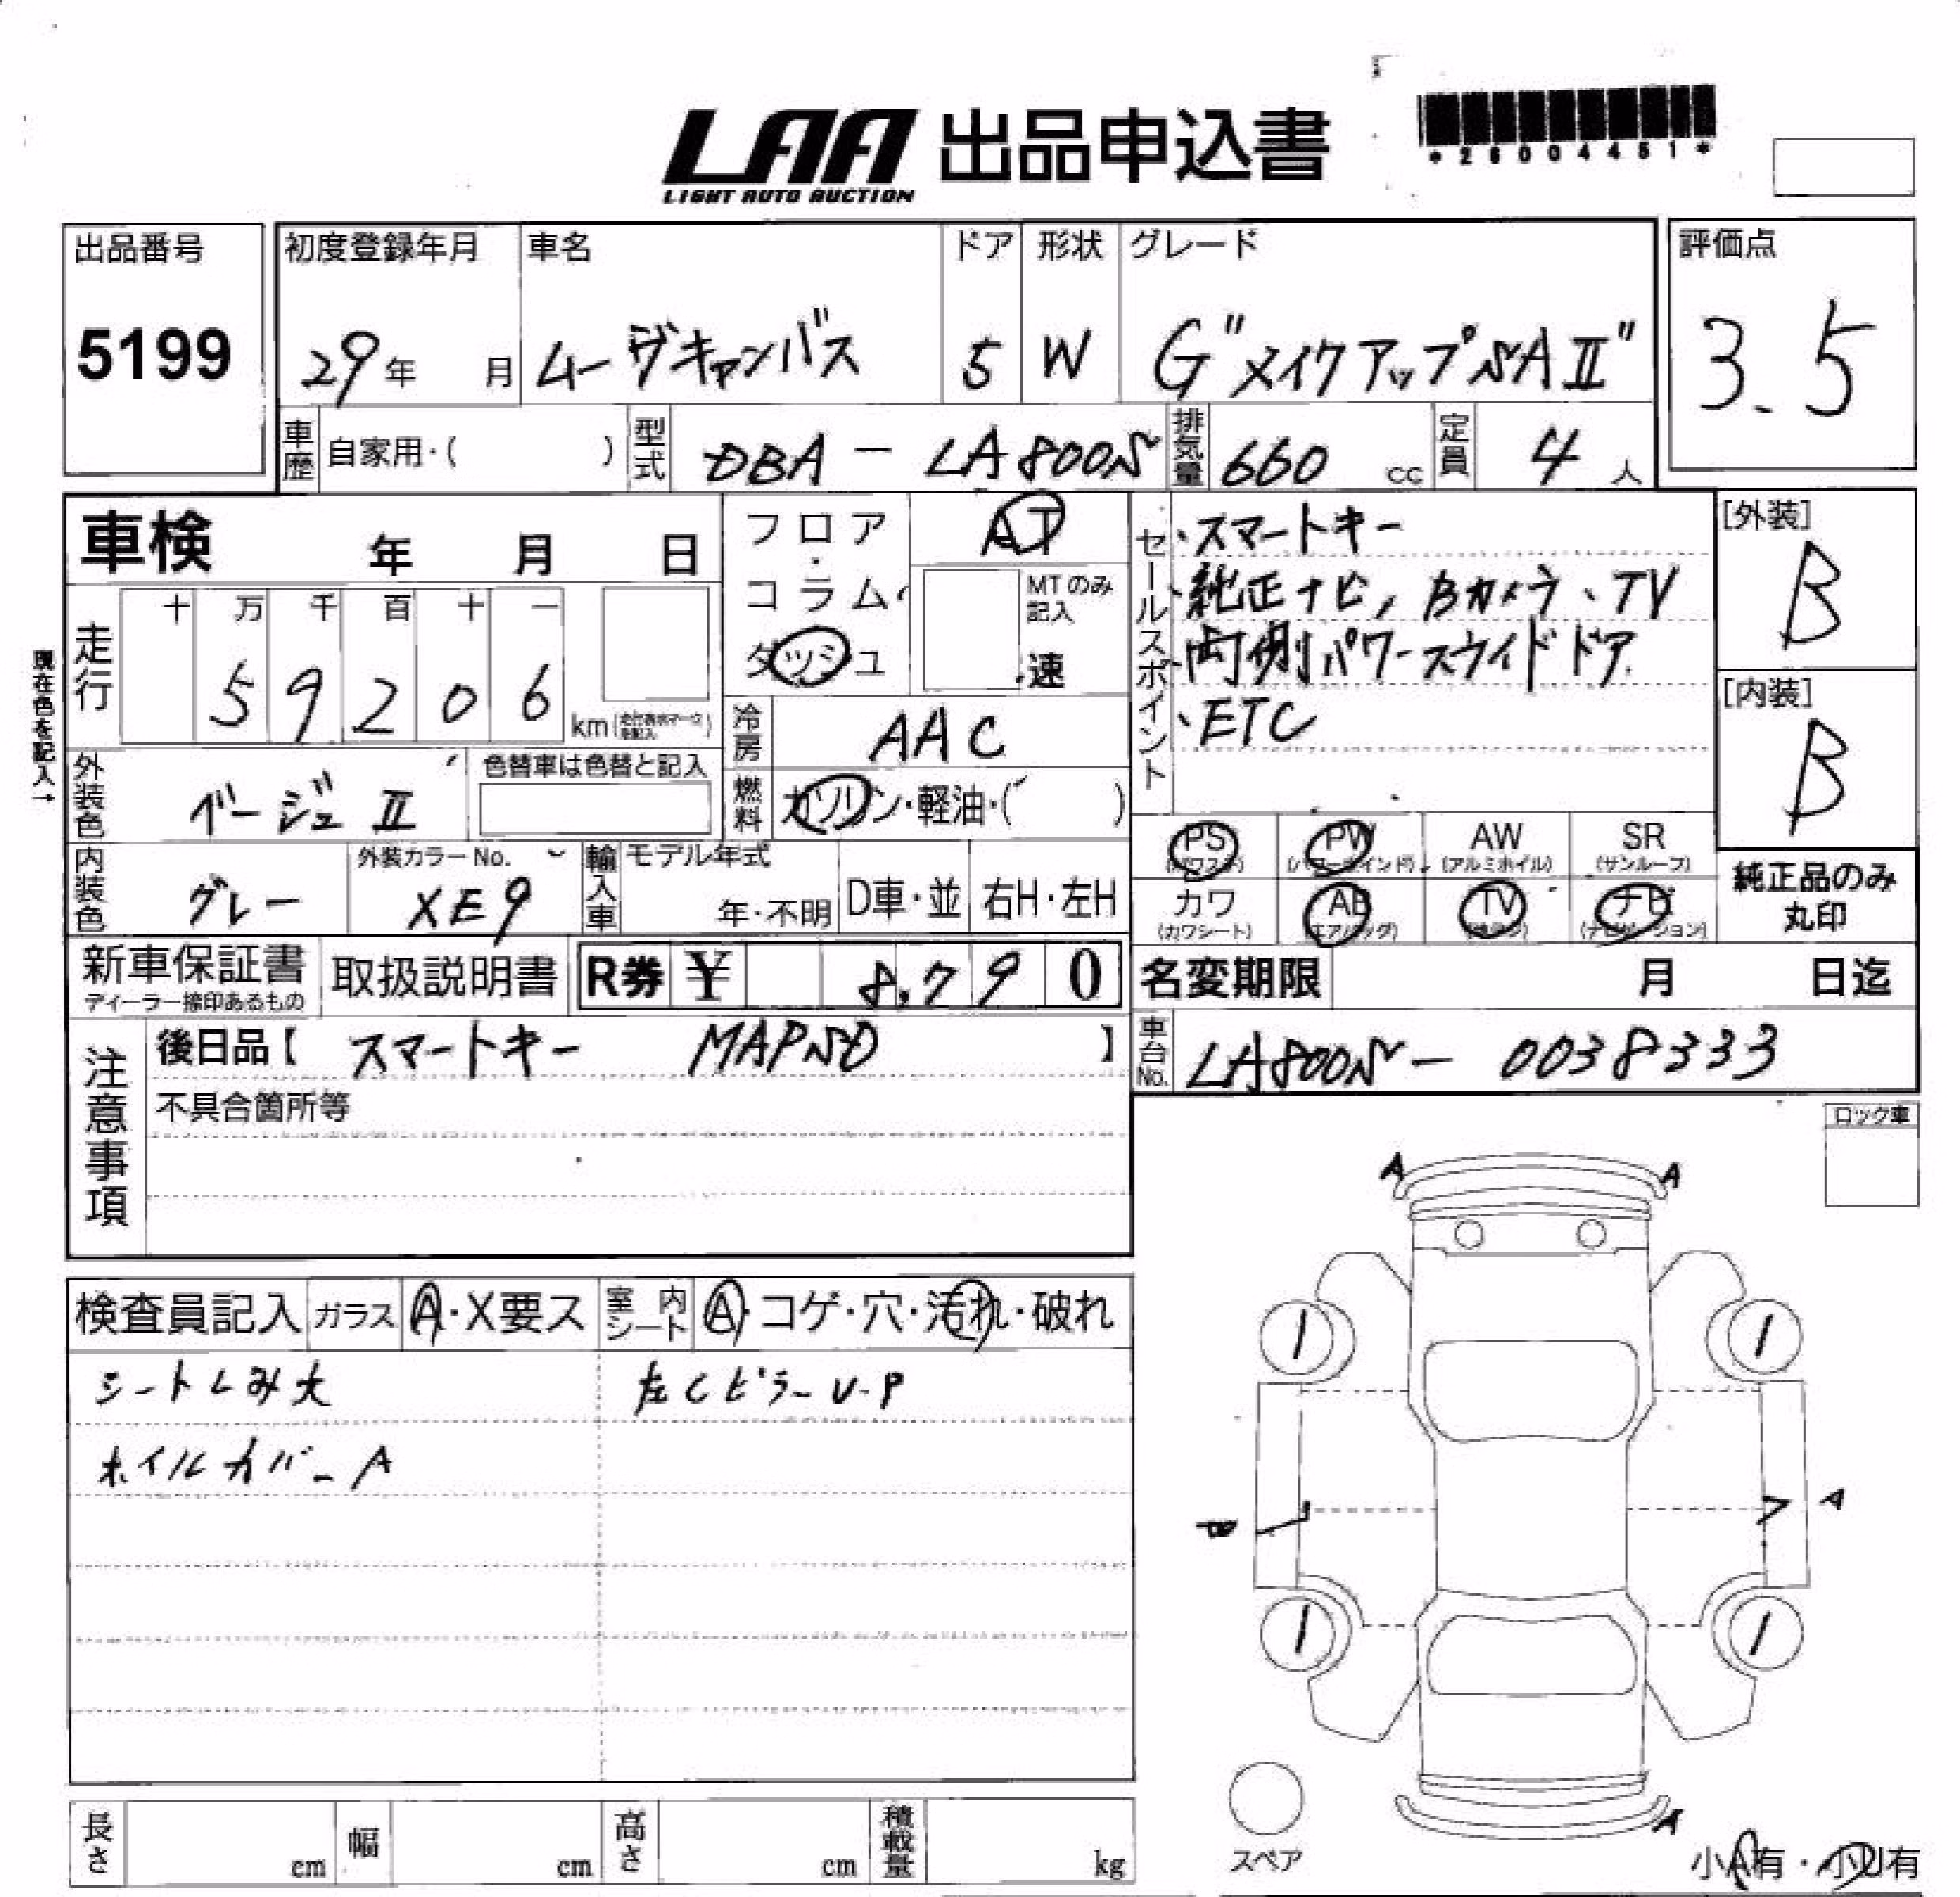 LAA 出品申込書
LIGHT AUTO AUCTION
*26004451*
出品番号 初度登録年月 車名 ドア 形状 グレード 評価点
5199 29年 月 ムーヴキャンバス 5 W G"メイクアップSAⅡ" 3.5
車歴 自家用・( ) 型式 DBA-LA800S 排気量 660 cc 定員 4 人
車検 年 月 日
フロア・コラム・ダッシュ AT
MTのみ記入 速
セールスポイント
・スマートキー
・純正ナビ、Bカメラ、TV
・両側パワースライドドア
・ETC
[外装] B
[内装] B
現在色を記入→
走行 十 万 千 百 十 一
59206 km (走行表示マークを記入)
冷房 AAC
外装色 ベージュⅡ 色替車は色替と記入
燃料 ガソリン・軽油・( )
PS (パワステ) PW (パワーウインド) AW (アルミホイル) SR (サンルーフ)
カワ (カワシート) AB (エアバッグ) TV ナビ (ナビゲーション)
純正品のみ丸印
内装色 グレー 外装カラーNo. XE9 輸入車 モデル年式 年・不明 D車・並 右H・左H
新車保証書 ディーラー捺印あるもの 取扱説明書 R券 ¥ 8,790
名変期限 月 日迄
注意事項 後日品【 スマートキー MAPSD 】
車台No. LA800S-0038333
不具合箇所等
ロック車
A A
検査員記入 ガラス A・X要ス 室内シート A・コゲ・穴・汚れ・破れ
シートしみ大 左CピラーU-P
ホイルカバーA
A
A
長さ cm 幅 cm 高さ cm 積載量 kg
スペア
小A有・小U有